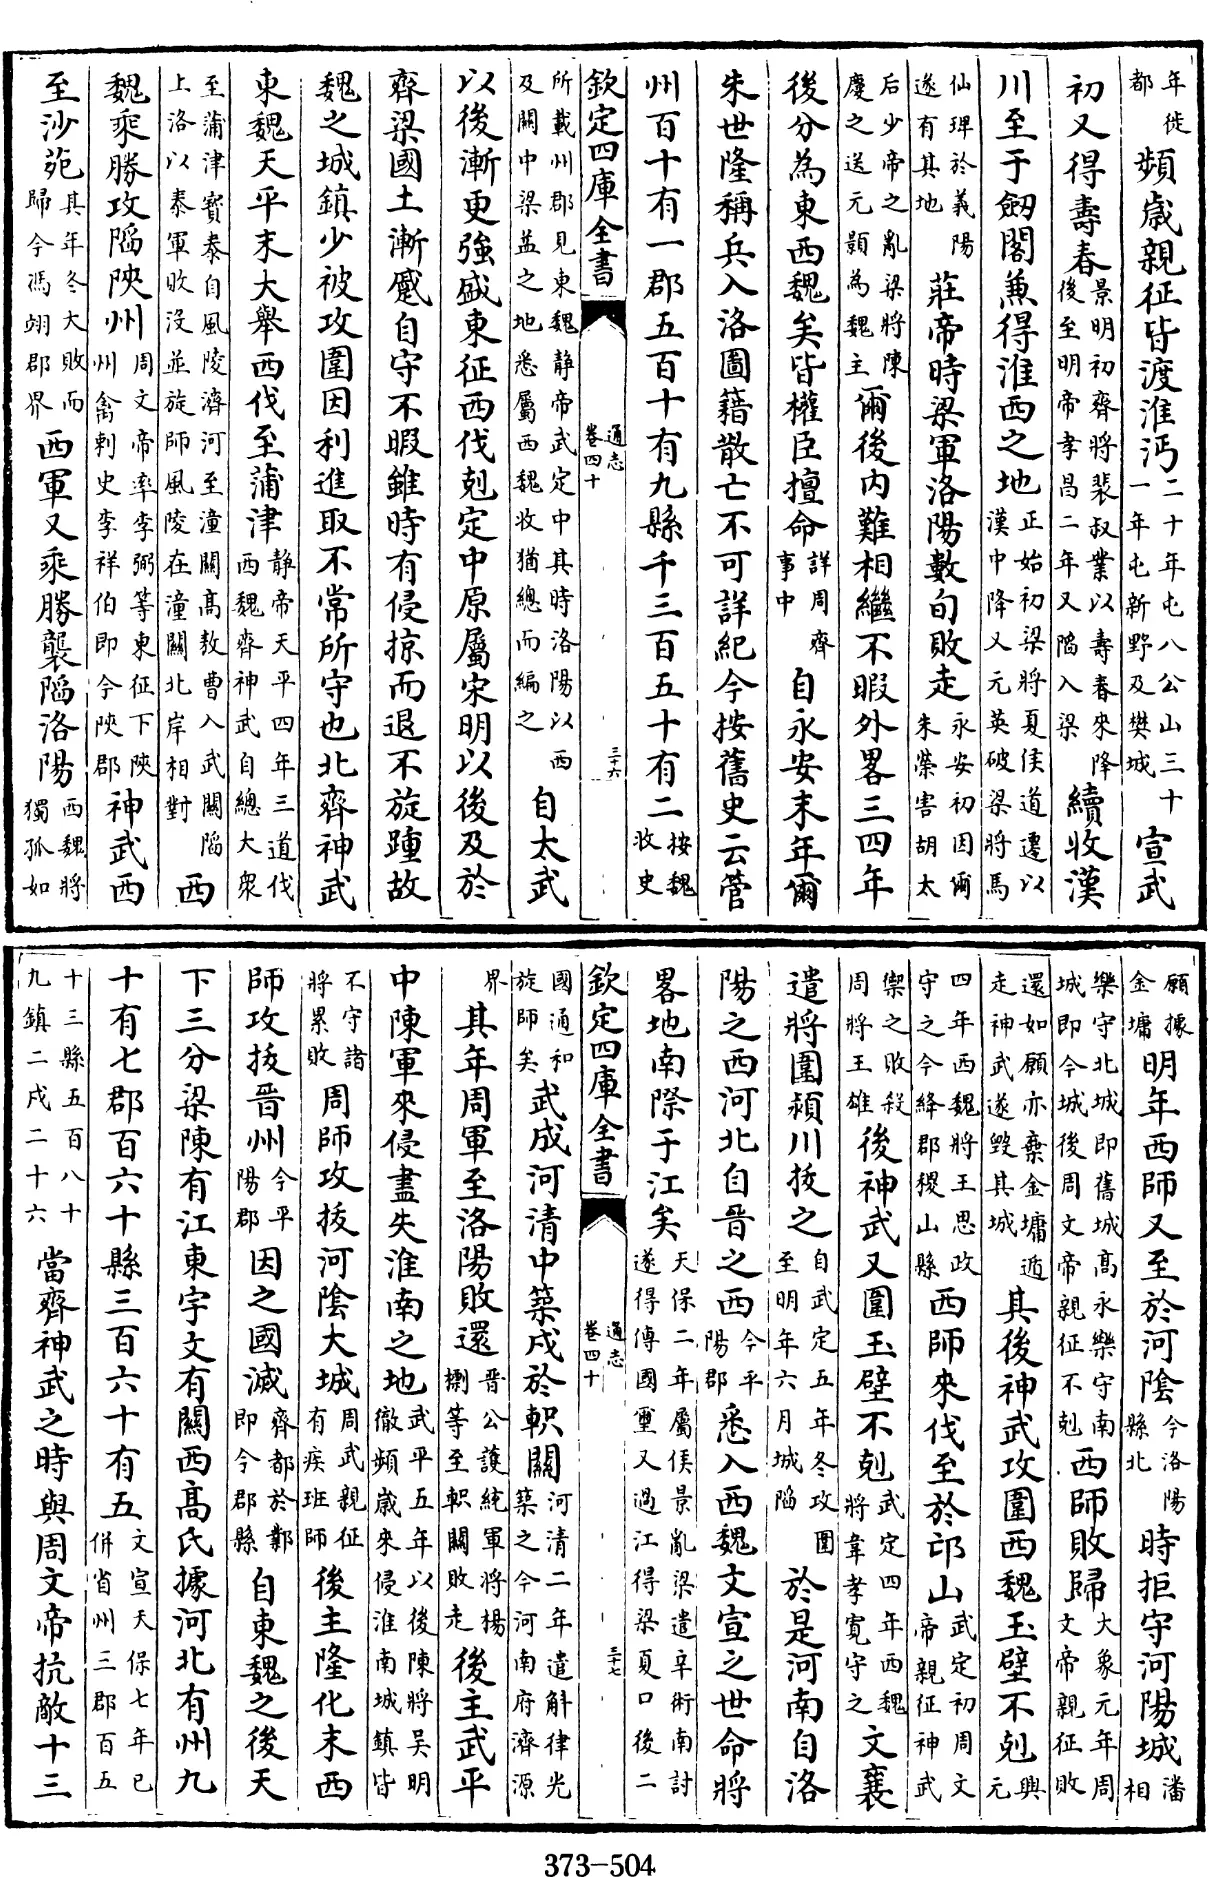 年徙都頻歲親征皆渡淮沔二十年屯八公山三十一年屯新野及樊城宣武
初又得壽春景明初齊將裴叔業以壽春來降後至明帝孝昌二年又陷入梁續收漢
川至于劒閣兼得淮西之地正始初梁將夏侯道遷以漢中降又元英破梁將馬
仙琕於義陽遂有其地莊帝時梁軍洛陽數旬敗走永安初因爾朱榮害胡太
后少帝之亂梁將陳慶之送元顥為魏主爾後内難相繼不暇外畧三四年
後分為東西魏矣皆權臣擅命詳周齊事中自永安末年爾
朱世隆稱兵入洛圖籍散亡不可詳紀今按舊史云管
州百十有一郡五百十有九縣千三百五十有二按魏收史
欽定四庫全書 通志卷四十 三十六
所載州郡見東魏静帝武定中其時洛陽以西及關中梁益之地悉屬西魏收猶總而編之自太武
以後漸更強盛東征西伐剋定中原屬宋明以後及於
齊梁國土漸蹙自守不暇雖時有侵掠而退不旋踵故
魏之城鎮少被攻圍因利進取不常所守也北齊神武
東魏天平末大舉西伐至蒲津静帝天平四年三道伐西魏齊神武自總大衆
至蒲津竇泰自風陵濟河至潼關高敖曹入武關陷上洛以泰軍敗沒並旋師風陵在潼關北岸相對西
魏乘勝攻陷陜州周文帝率李弼等東征下陜州禽刺史李祥伯即今陜郡神武西
至沙苑其年冬大敗而歸今馮翊郡界西軍又乘勝襲陷洛陽西魏將獨孤如
願據金墉明年西師又至於河陰今洛陽縣北時拒守河陽城潘相
樂守北城即舊城高永樂守南城即今城後周文帝親征不剋西師敗歸大象元年周文帝親征敗
還如願亦棄金墉遁走神武遂毀其城其後神武攻圍西魏玉壁不剋興元
四年西魏將王思政守之今絳郡稷山縣西師來伐至於邙山武定初周文帝親征神武
禦之敗殺周將王雄後神武又圍玉壁不剋武定四年西魏將韋孝寬守之文襄
遣將圍潁川拔之自武定五年冬攻圍至明年六月城陷於是河南自洛
陽之西河北自晉之西今平陽郡悉入西魏文宣之世命將
畧地南際于江矣天保二年屬侯景亂梁遣辛術南討遂得傳國璽又過江得梁夏口後二
欽定四庫全書 通志卷四十 三十七
國通和旋師矣武成河清中築戍於軹關河清二年遣斛律光築之今河南府濟源
界其年周軍至洛陽敗還晉公護統軍將楊㯹等至軹關敗走後主武平
中陳軍來侵盡失淮南之地武平五年以後陳將吳明徹頻歲來侵淮南城鎮皆
不守諸將累敗周師攻拔河陰大城周武親征有疾班師後主隆化末西
師攻拔晉州今平陽郡因之國滅齊都於鄴即今郡縣自東魏之後天
下三分梁陳有江東宇文有關西高氏據河北有州九
十有七郡百六十縣三百六十有五文宣天保七年已併省州三郡百五
十三縣五百八十九鎮二戍二十六當齊神武之時與周文帝抗敵十三
373-504